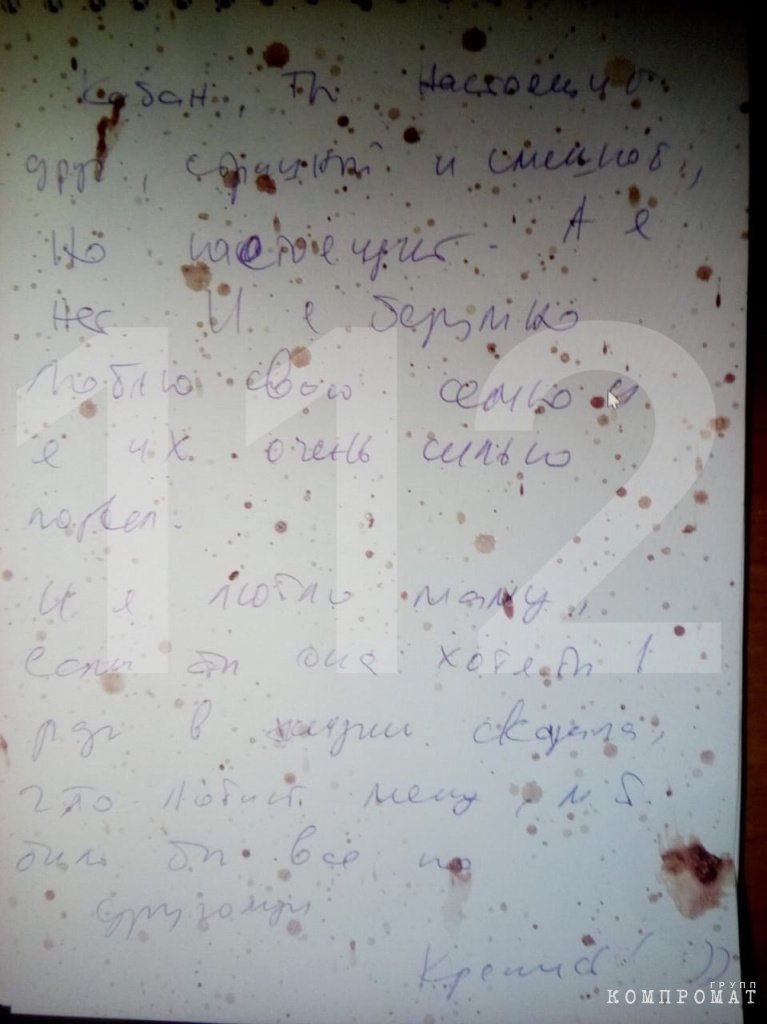 Кабан, ты настоящий
друг, страшный и смешной,
но настоящий. А я
нет И я безумно
люблю свою семью и
я их очень сильно
подвел.
И я люблю маму,
Если бы она хотя бы 1
раз в жизни сказала,
что любит меня, м.б.
было бы все по
другому
112
ГРУПП
КОМПРОМАТ